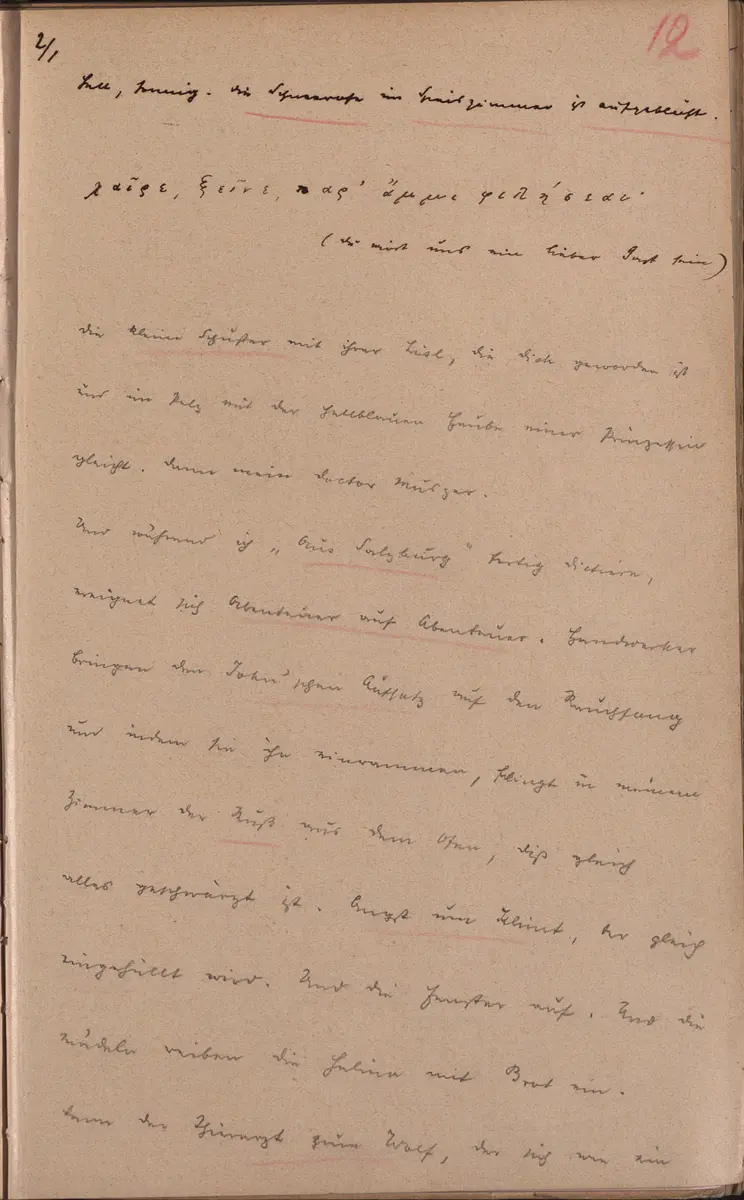 2/1
12
Hell, sonnig. Die Schneerose im Speiszimmer ist aufgeblüht.
χαῖρε, ξεῖνε, παρ' ἄμμι φιλήσεαι·
(du wirst uns ein lieber Gast sein)
Die kleine Schuster mit ihrer Lisl, die dick geworden ist
und im Pelz mit der hellblauen Haube einer Prinzessin
gleicht. Dann mein Doctor
Und während ich „Aus Salzburg" fertig dictiere,
ereignet sich Abenteuer auf Abenteuer. Handwerker
bringen den John'schen Aufsatz auf den Rauchfang
und indem sie ihn einrammen, springt in meinem
Zimmer der Ruß aus dem Ofen, daß gleich
alles geschwärzt ist. Angst um Klimt, der gleich
eingehüllt wird. Und die Fenster auf. Und die
Mädeln reiben die mit Brot ein.
Dann der Thierarzt zum Wolf, der sich wie ein